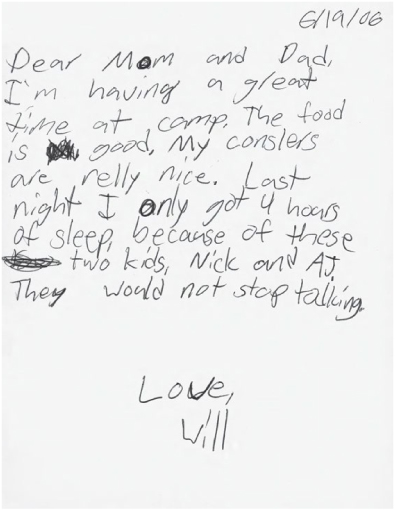 6/19/06
Dear Mom and Dad,
I'm having a great
time at camp. The food
is good, My conslers
are relly nice. Last
night I only got 4 hours
of sleep, because of these
two kids, Nick and AJ.
They would not stop talking.
Love,
Will